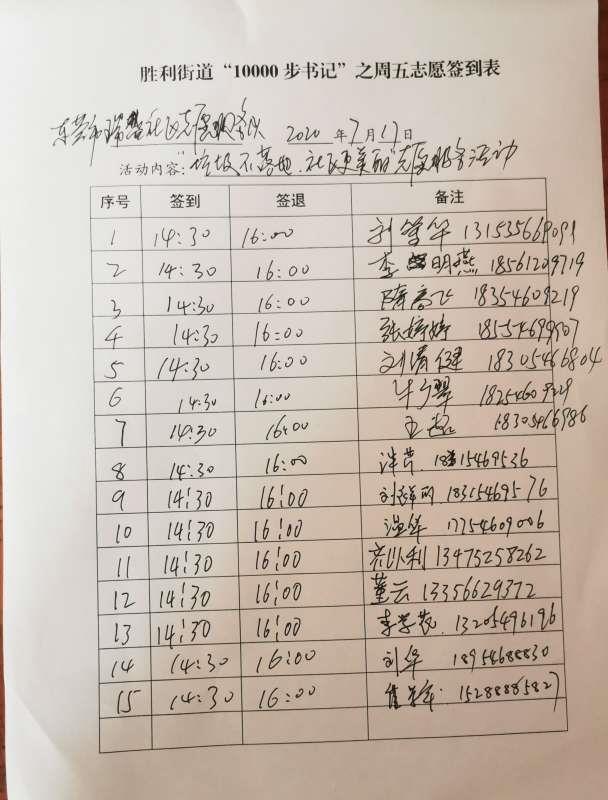 胜利街道“10000步书记”之周五志愿签到表
东营市 社区志愿服务队 2020年7月17日
活动内容：“垃圾不落地、社区更美丽”志愿服务活动
序号 签到 签退 备注
1 14:30 16:00 刘学华
2 14:30 16:00 李明燕 18561209719
3 14:30 16:00 隋高飞 18354609219
4 14:30 16:00 张婷婷
5 14:30 16:00 刘清健 18305466804
6 14:30 16:00
7 14:30 16:00 王超 18305466986
8 14:30 16:00
9 14:30 16:00
10 14:30 16:00 温华 17754609006
11 14:30 16:00 13475258262
12 14:30 16:00 董云 13356629372
13 14:30 16:00 李学 13205496196
14 14:30 16:00 刘华 18954688830
15 14:30 16:00 15288885827